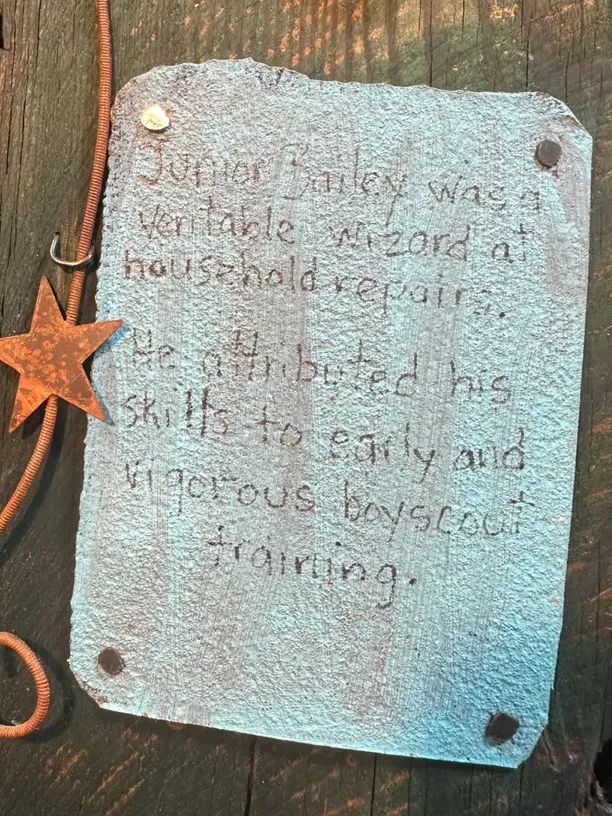 Junior Bailey was a
veritable wizard at
household repairs.
He attributed his
skills to early and
vigorous boyscout
training.